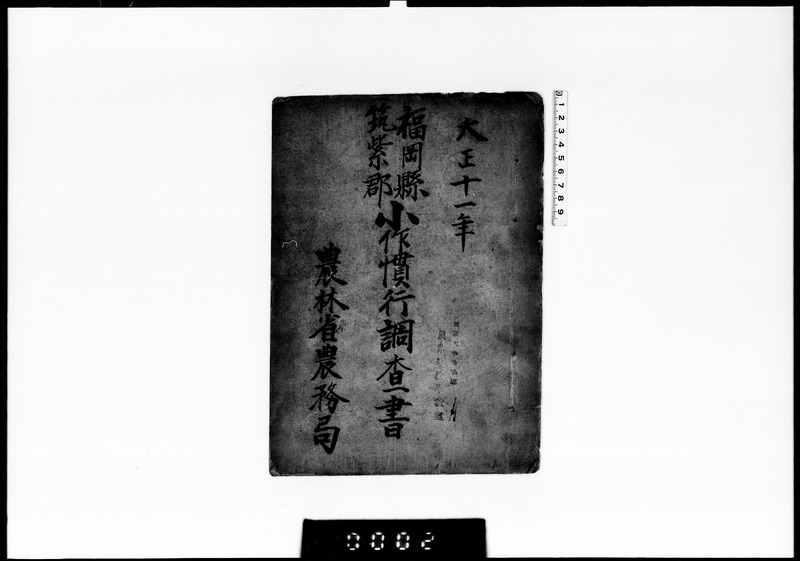 大正十一年
福岡縣
筑紫郡
小作慣行調査書
農林省農務局
1 2 3 4 5 6 7 8 9
0002